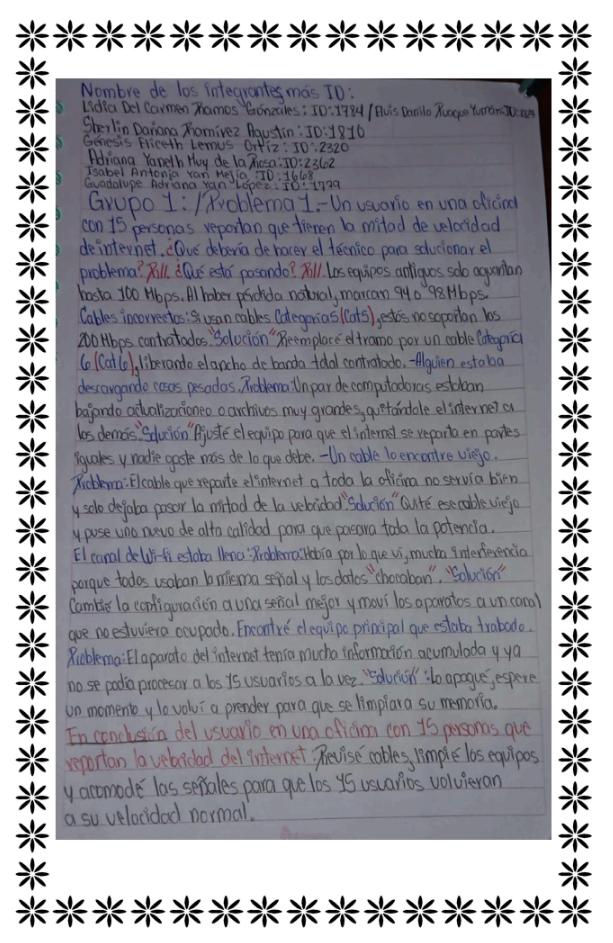 Nombre de los integrantes más ID:
Lidia Del Carmen Ramos Gonzales: ID:1784 / Elvis Danilo Yumán ID:
Sherlin Dariana Ramírez Agustín: ID:1810
Génesis Eliceth Lemus Ortíz: ID:2320
Adriana Yaneth Huy de la Rosa: ID:2362
Isabel Antonia Yan Mejía: ID:1668
Guadalupe Adriana Yan López: ID:1779
Grupo 1:/Problema 1.-Un usuario en una oficina
con 15 personas reportan que tienen la mitad de velocidad
de internet. ¿Qué debería de hacer el técnico para solucionar el
problema? R///. ¿Qué está pasando? R///. Los equipos antiguos solo aguantan
hasta 100 Mbps. Al haber pérdida natural, marcan 94 o 98 Mbps.
Cables incorrectos: Si usan cables Categoría 5 (Cat5), estos no soportan los
200 Mbps contratados. "Solución" Reemplacé el tramo por un cable Categoría
6 (Cat6), liberando el ancho de banda total contratado. -Alguien estaba
descargando cosas pesadas. Problema: Un par de computadoras estaban
bajando actualizaciones o archivos muy grandes, quitándole el internet a
los demás. "Solución" Ajusté el equipo para que el internet se reparta en partes
iguales y nadie gaste más de lo que debe. -Un cable lo encontre viejo.
Problema: El cable que reparte el internet a toda la oficina no servía bien
y solo dejaba pasar la mitad de la velocidad "Solución" Quité ese cable viejo
y puse uno nuevo de alta calidad para que pasara toda la potencia.
El canal de Wi-fi estaba lleno: Problema: Había por lo que vi, mucha interferencia
porque todos usaban la misma señal y los datos "chocaban". "Solución"
Cambié la configuración a una señal mejor y moví los aparatos a un canal
que no estuviera ocupado. Encontré el equipo principal que estaba trabado.
Problema: El aparato del internet tenía mucha información acumulada y ya
no se podía procesar a los 15 usuarios a la vez. "Solución": Lo apagué, espere
un momento y lo volví a prender para que se limpiara su memoria.
En conclusión del usuario en una oficina con 15 personas que
reportan la velocidad del internet: Revisé cables, limpié los equipos
y acomodé las señales para que los 15 usuarios volvieran
a su velocidad normal.